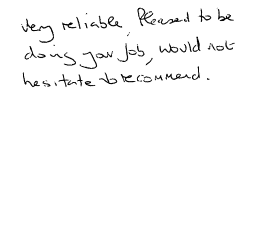 very reliable, Pleased to be
doing your job, would not
hesitate to recommend.